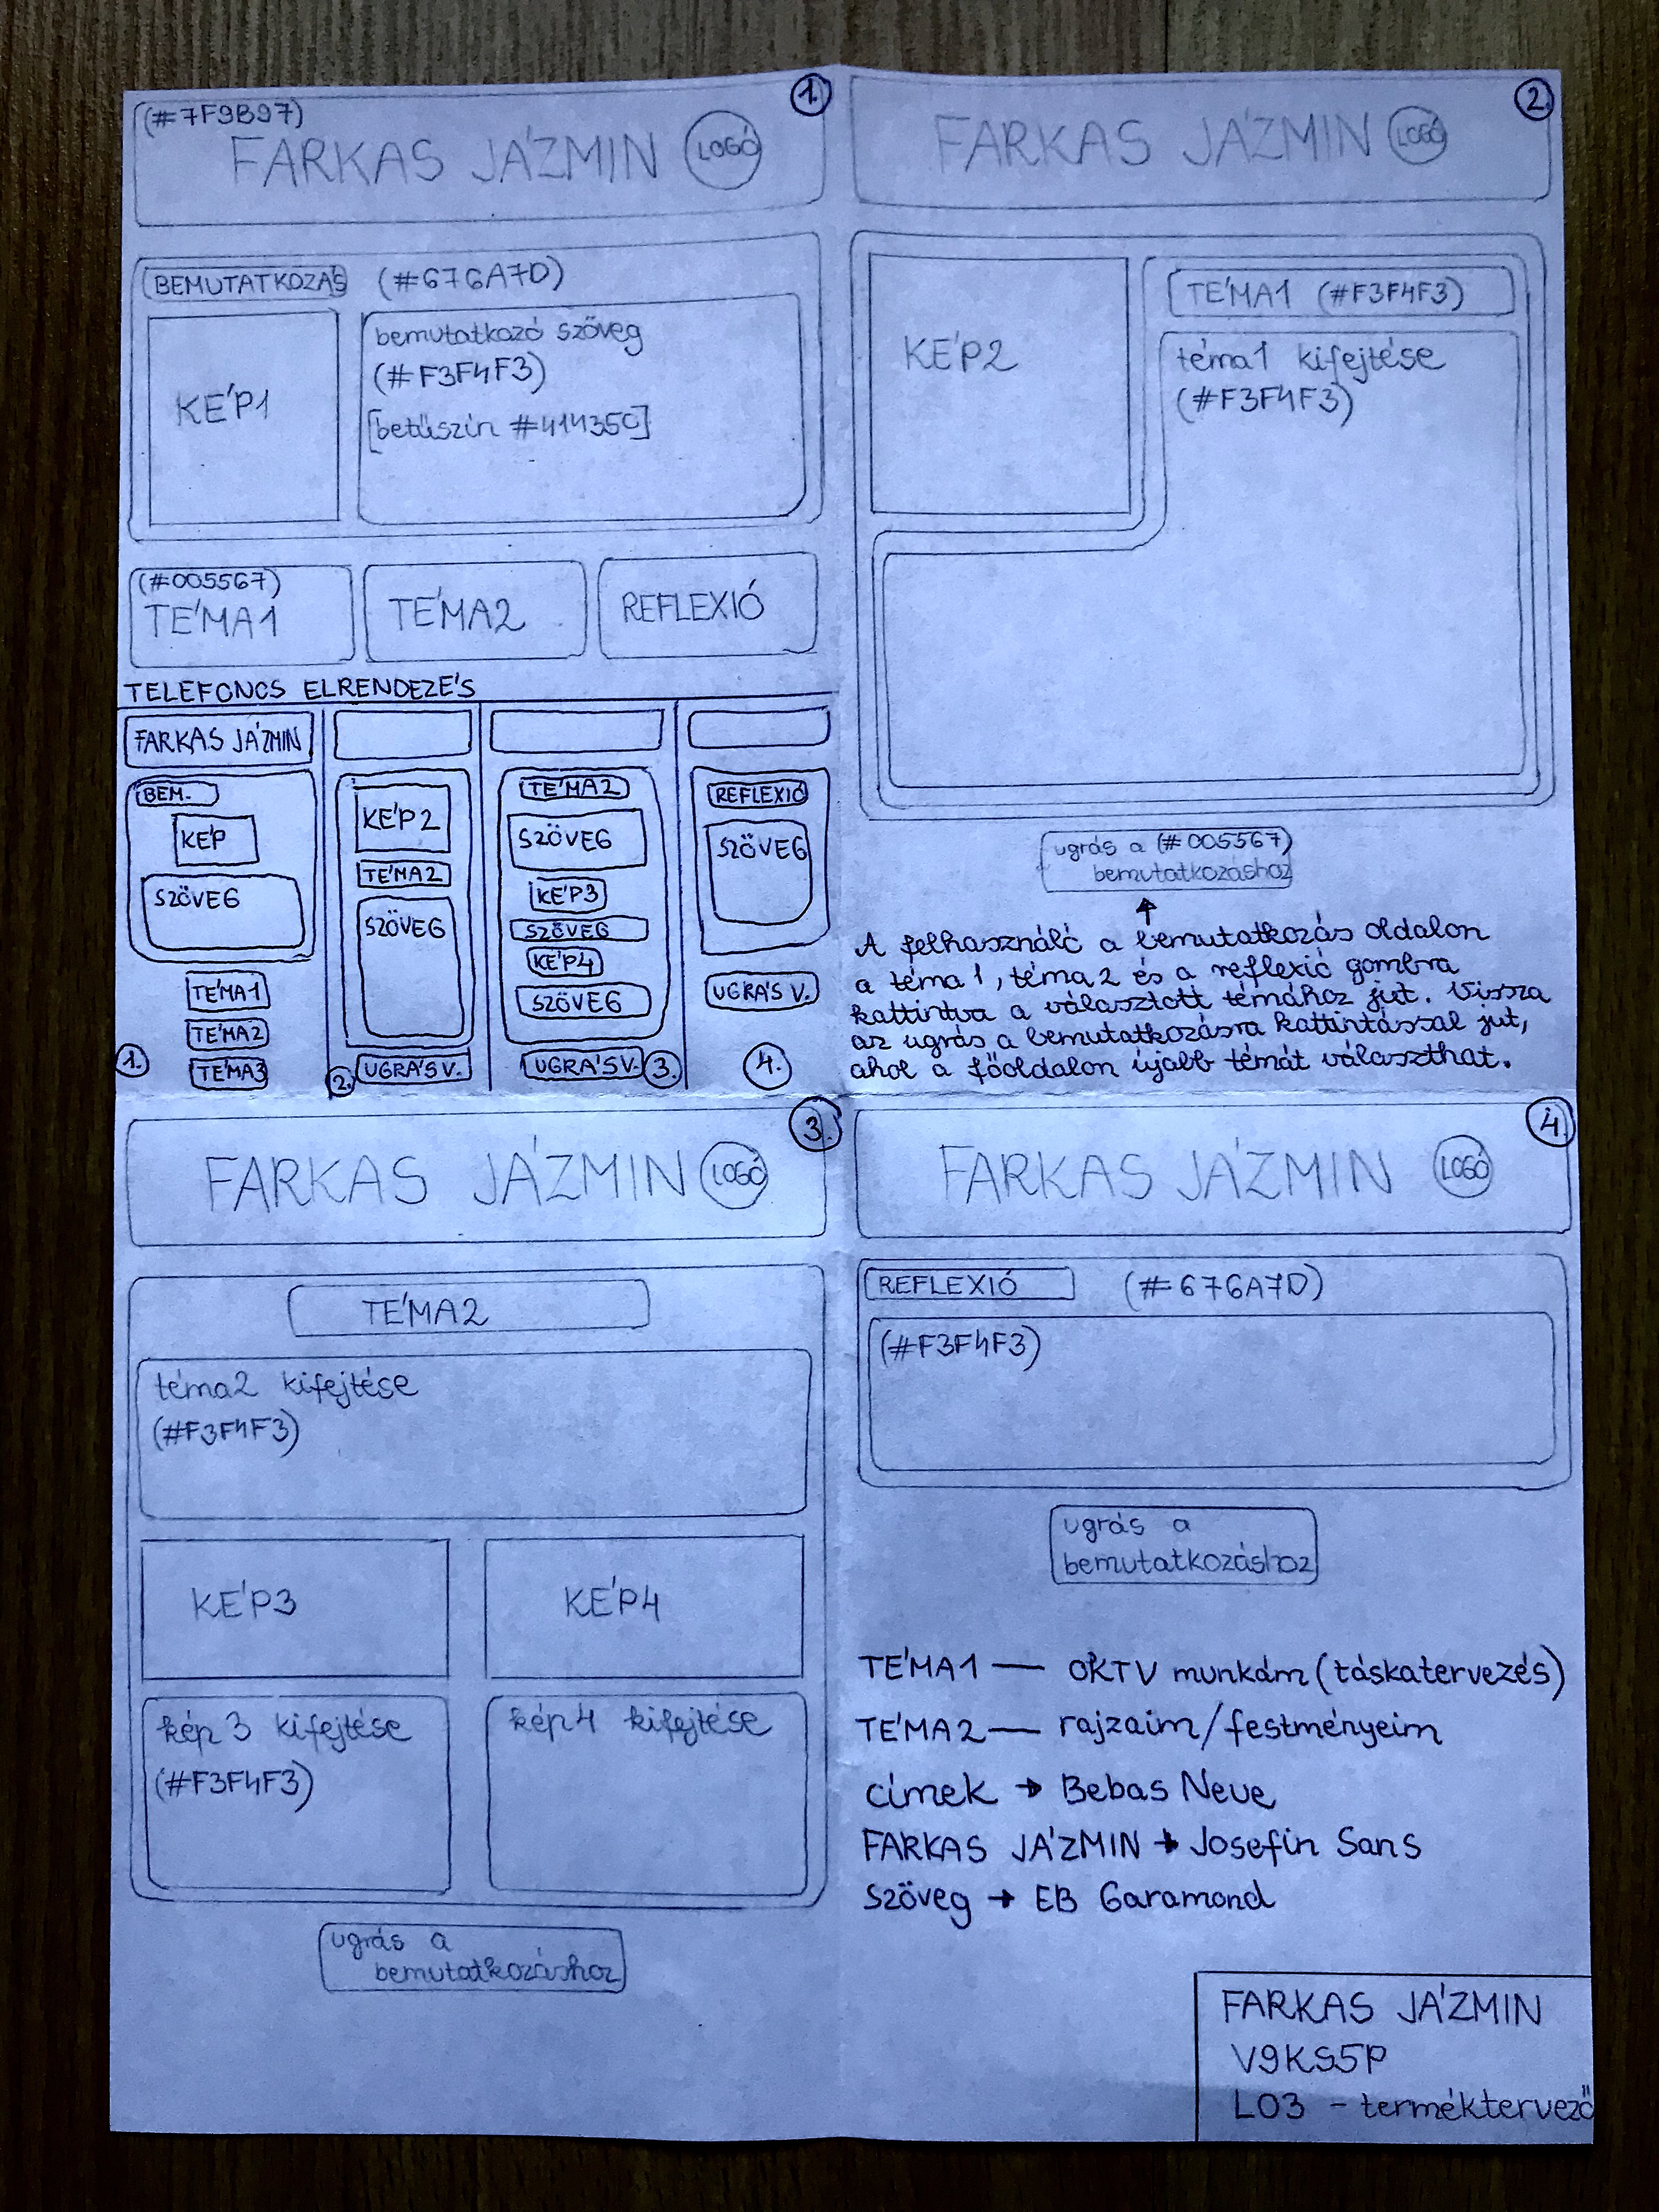 (#7F9B97)
FARKAS JÁZMIN LOGÓ
1.
BEMUTATKOZÁS (#676A7D)
KÉP1
bemutatkozó szöveg
(#F3F4F3)
[betűszín #41435C]
(#005567)
TÉMA1
TÉMA2
REFLEXIÓ
TELEFONOS ELRENDEZÉS
FARKAS JÁZMIN
BEM.
KÉP
SZÖVEG
TÉMA1
TÉMA2
TÉMA3
1.
KÉP2
TÉMA2
SZÖVEG
UGRÁS V.
2.
TÉMA2
SZÖVEG
KÉP3
SZÖVEG
KÉP4
SZÖVEG
UGRÁS V.
3.
REFLEXIÓ
SZÖVEG
UGRÁS V.
4.
FARKAS JÁZMIN LOGÓ
2.
KÉP2
TÉMA1 (#F3F4F3)
téma1 kifejtése
(#F3F4F3)
ugrás a (#005567)
bemutatkozáshoz
A felhasználó a bemutatkozás oldalon
a téma1, téma2 és a reflexió gombra
kattintva a választott témához jut. Vissza
az ugrás a bemutatkozásra kattintással jut,
ahol a főoldalon újabb témát választhat.
FARKAS JÁZMIN LOGÓ
3.
TÉMA2
téma2 kifejtése
(#F3F4F3)
KÉP3
KÉP4
kép3 kifejtése
(#F3F4F3)
kép4 kifejtése
ugrás a
bemutatkozáshoz
FARKAS JÁZMIN LOGÓ
4.
REFLEXIÓ (#676A7D)
(#F3F4F3)
ugrás a
bemutatkozáshoz
TÉMA1 — OKTV munkám (táskatervezés)
TÉMA2 — rajzaim/festményeim
címek → Bebas Neue
FARKAS JÁZMIN → Josefin Sans
Szöveg → EB Garamond
FARKAS JÁZMIN
V9KS5P
L03 - terméktervező